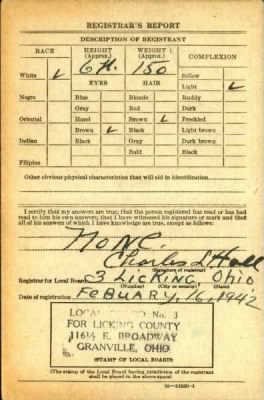 REGISTRAR'S REPORT
DESCRIPTION OF REGISTRANT
RACE HEIGHT (Approx.) WEIGHT (Approx.) COMPLEXION
6 ft. 150 Sallow
White ✓ EYES HAIR Light ✓
Negro Blue Blonde Ruddy
Gray Red Dark
Oriental Hazel Brown ✓ Freckled
Brown ✓ Black Light brown
Indian Black Gray Dark brown
Bald Black
Filipino
Other obvious physical characteristics that will aid in identification
I certify that my answers are true; that the person registered has read or has had
read to him his own answers; that I have witnessed his signature or mark and that
all of his answers of which I have knowledge are true, except as follows:
None.
Charles L. Hall
(Signature of registrar)
Registrar for Local Board 3 Licking, Ohio
(Number) (City or county) (State)
Date of registration Febuary, 16, 1942
LOCAL BOARD No. 3
FOR LICKING COUNTY
116½ E. BROADWAY
GRANVILLE, OHIO
(STAMP OF LOCAL BOARD)
(The stamp of the Local Board having jurisdiction of the registrant
shall be placed in the above space)